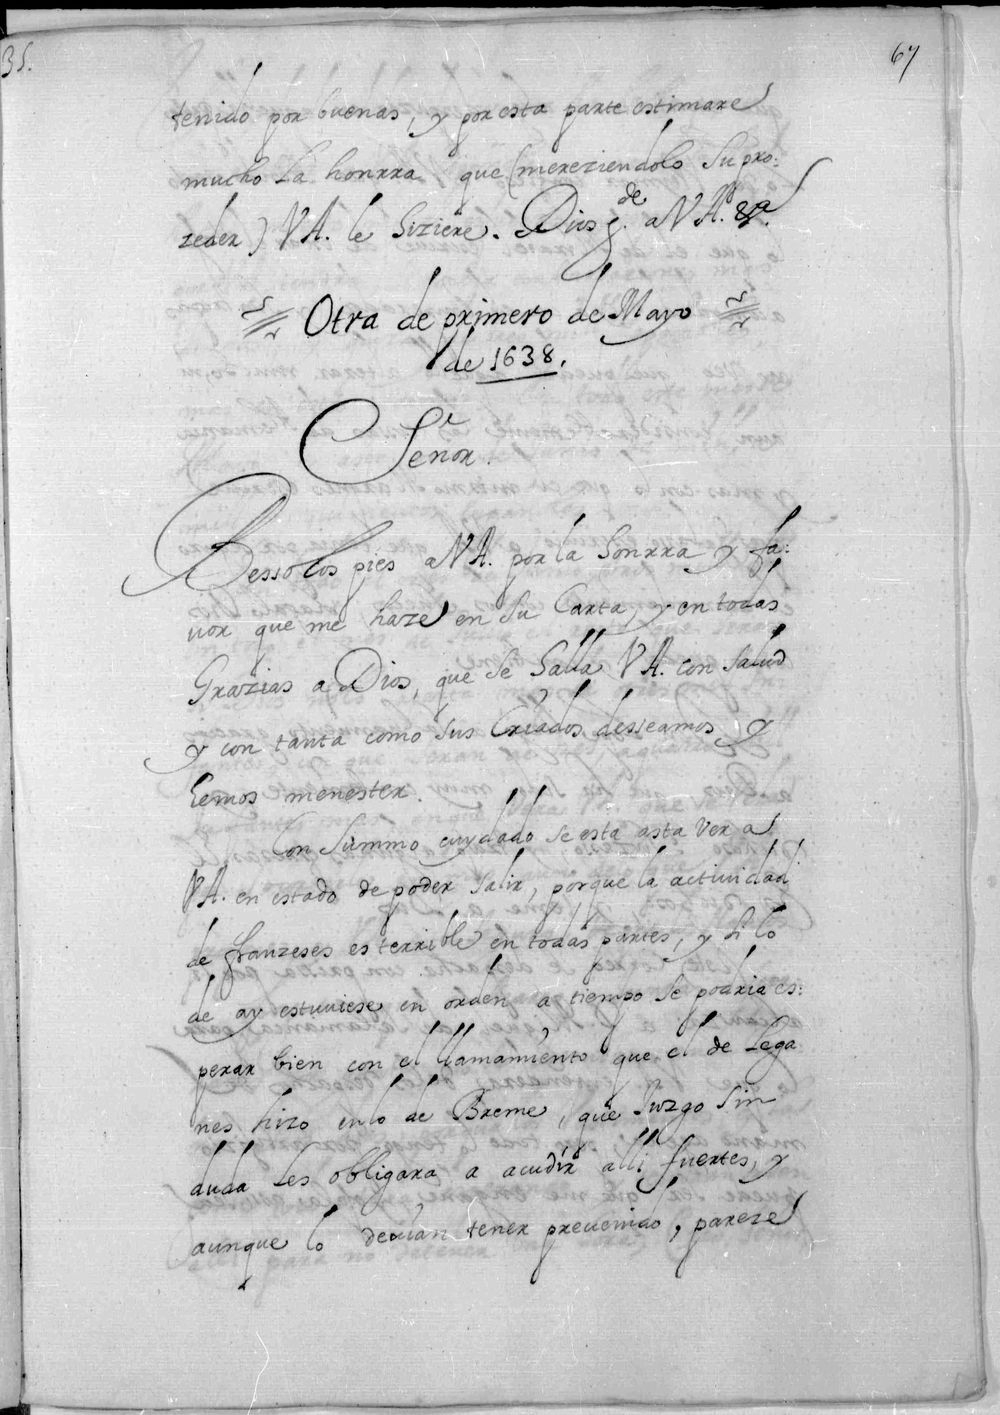 35.
67
tenido por buenas, y por esta parte estimare
mucho la honrra que (mereziendolo su pro:
zeder) VA. le hiziere. Dios g.de a VA. &a.
Otra de primero de Mayo
de 1638.
Señor.
Besso los pies a VA. por la honrra y fa:
uor que me haze en su Carta, y en todas
Grazias a Dios, que se halla VA. con salud
y con tanta como sus Criados desseamos, y
hemos menester.
Con summo cuydado se esta asta ver a
VA. en estado de poder salir, porque la actiuidad
de franzeses es terrible en todas partes, y si lo
de ay estuuiese en orden a tiempo se podria es:
perar bien con el llamamiento que el de Lega
nes hizo en lo de Breme, que Juzgo sin
duda les obligara a acudir alli fuertes, y
aunque lo deuian tener preuenido, pareze